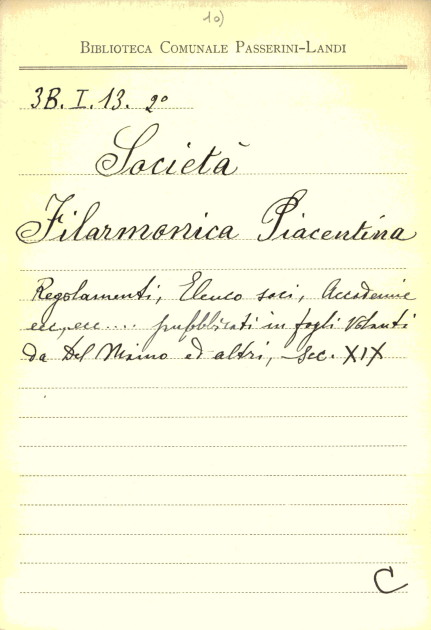 10)
BIBLIOTECA COMUNALE PASSERINI-LANDI
3B. I. 13. 2º
Società
Filarmonica Piacentina
Regolamenti, Elenco soci, Accademie
ecc, ecc .... pubblicati in fogli volanti
da Del Maino ed altri, - sec. XIX
C